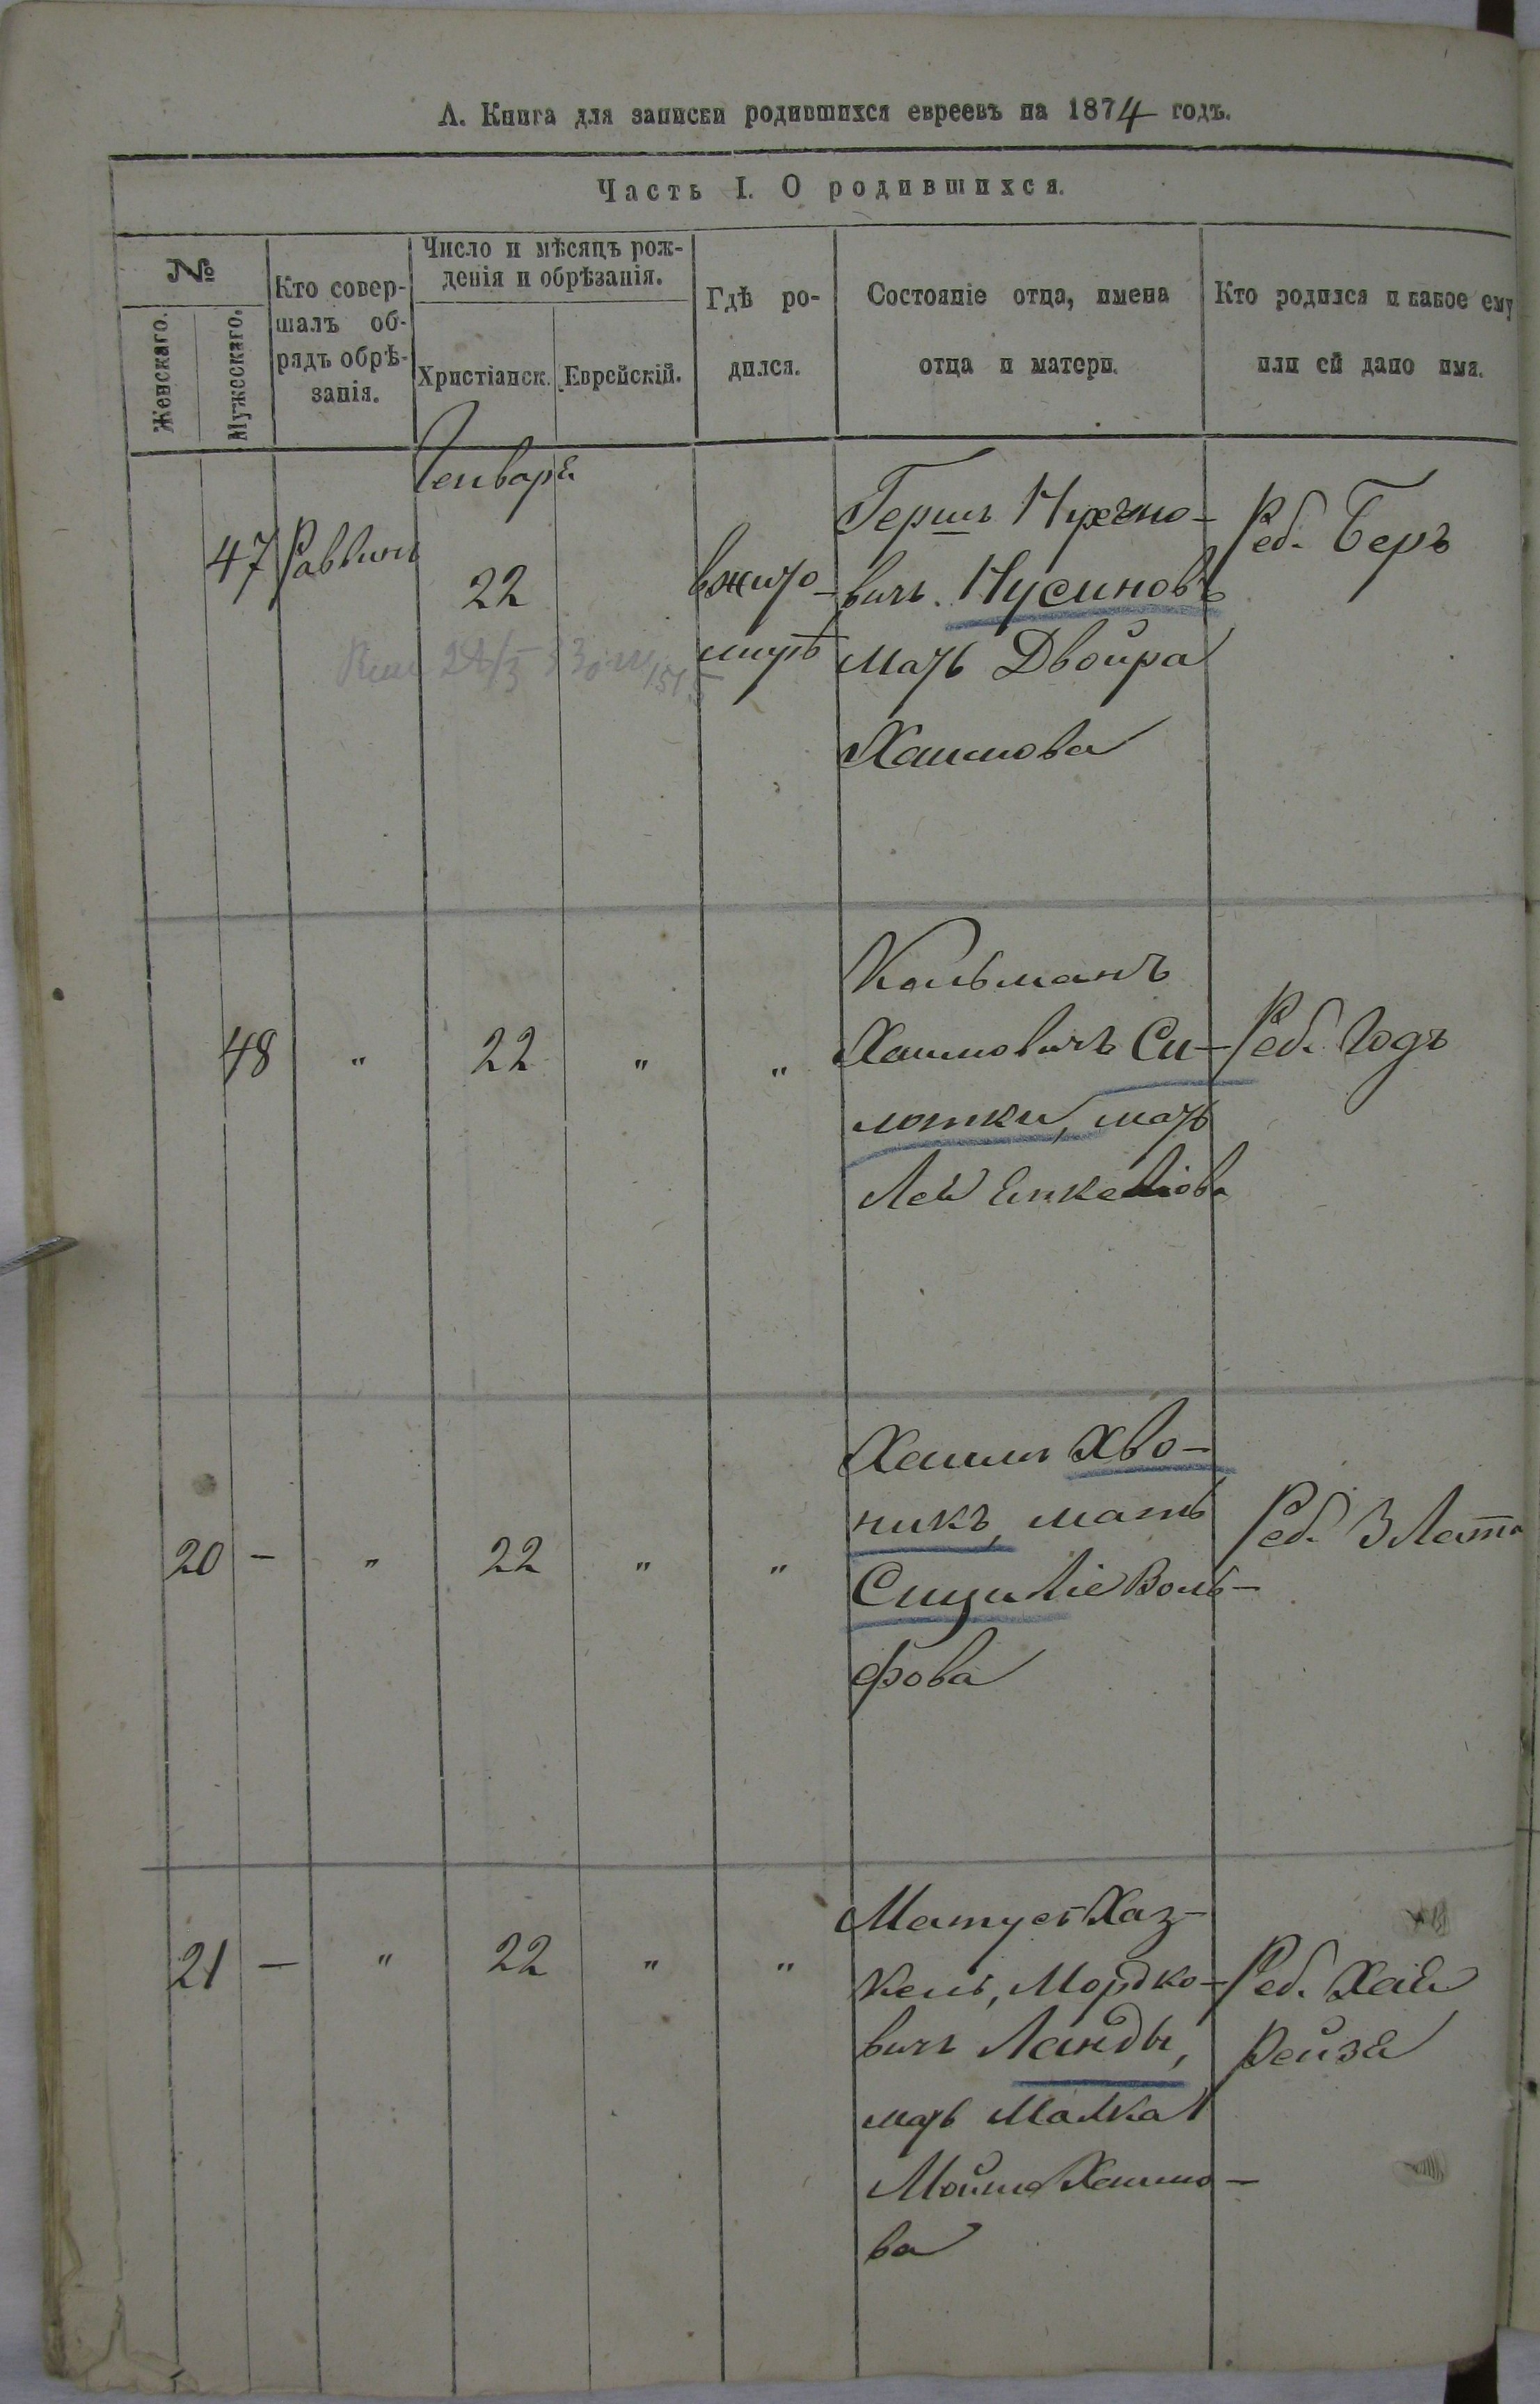 А. Книга для записки родившихся евреевъ на 1874 годъ.
Часть I. О родившихся.
№
Женскаго.
Мужескаго.
Кто совер-
шалъ об-
рядъ обрѣ-
занія.
Число и мѣсяцъ рож-
денія и обрѣзанія.
Христіанск.
Еврейскій.
Гдѣ ро-
дился.
Состояніе отца, имена
отца и матери.
Кто родился и какое ему
или ей дано имя.
Генваря
47 Раввинъ 22
вжито-
мирѣ
Гершъ
вичъ. Нусиновъ
мать Двойра
Хаимова
Реб. Беръ
48 " 22 " "
Кальманъ
Хаимовичъ Си-
лотки, мать
Лея Енкелiова
Реб. Годъ
20 - " 22 " "
Хаимъ Хво-
никъ, мать
Сицилiе Воль-
фова
Реб. Злата
21 - " 22 " "
Матусъ Хаз-
кель, Мордко-
вичъ Ланды,
мать Малка
Мойша Хаимо-
ва
Реб. Хая
Рейзя